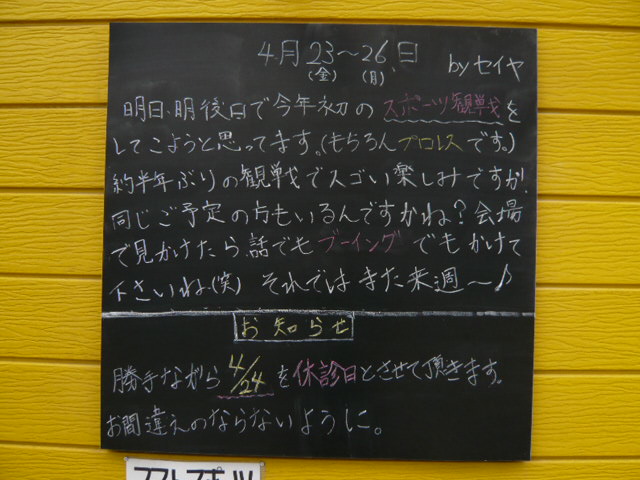 4月23〜26日
(金) (月)
byセイヤ
明日、明後日で今年初のスポーツ観戦を
してこようと思ってます。(もちろんプロレスです。)
約半年ぶりの観戦でスゴい楽しみですが、
同じご予定の方もいるんですかね?会場
で見かけたら、話でもブーイングでもかけて
下さいね(笑) それでは また来週〜♪
お知らせ
勝手ながら4/24を休診日とさせて頂きます。
お間違えのならないように。